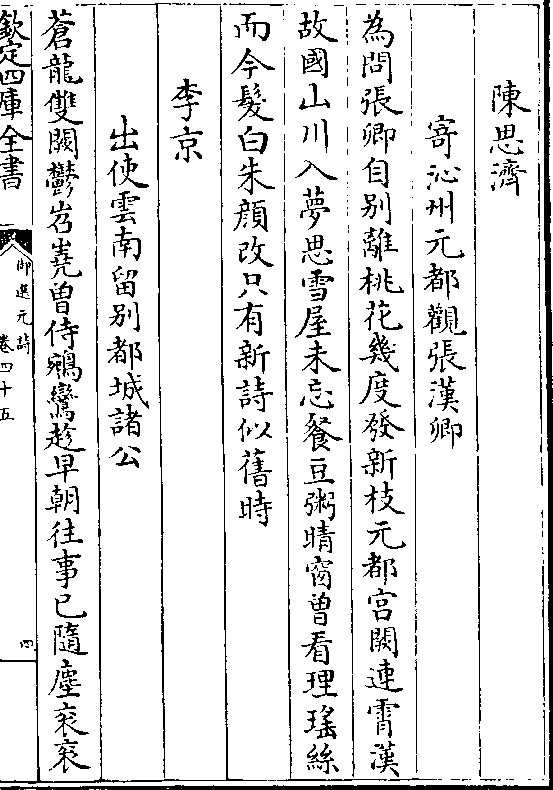 陳思濟
寄沁州元都觀張漢卿
為問張卿自别離桃花幾度發新枝元都宫闕連霄漢
故國山川入夢思雪屋未忘餐豆粥晴窗曽看理瑤絲
而今髮白朱顔改只有新詩似舊時
李京
出使雲南留别都城諸公
蒼龍雙闕鬱岧嶤曽侍鵷鸞趁早朝往事已隨塵衮衮
欽定四庫全書
御選元詩
卷四十五
四